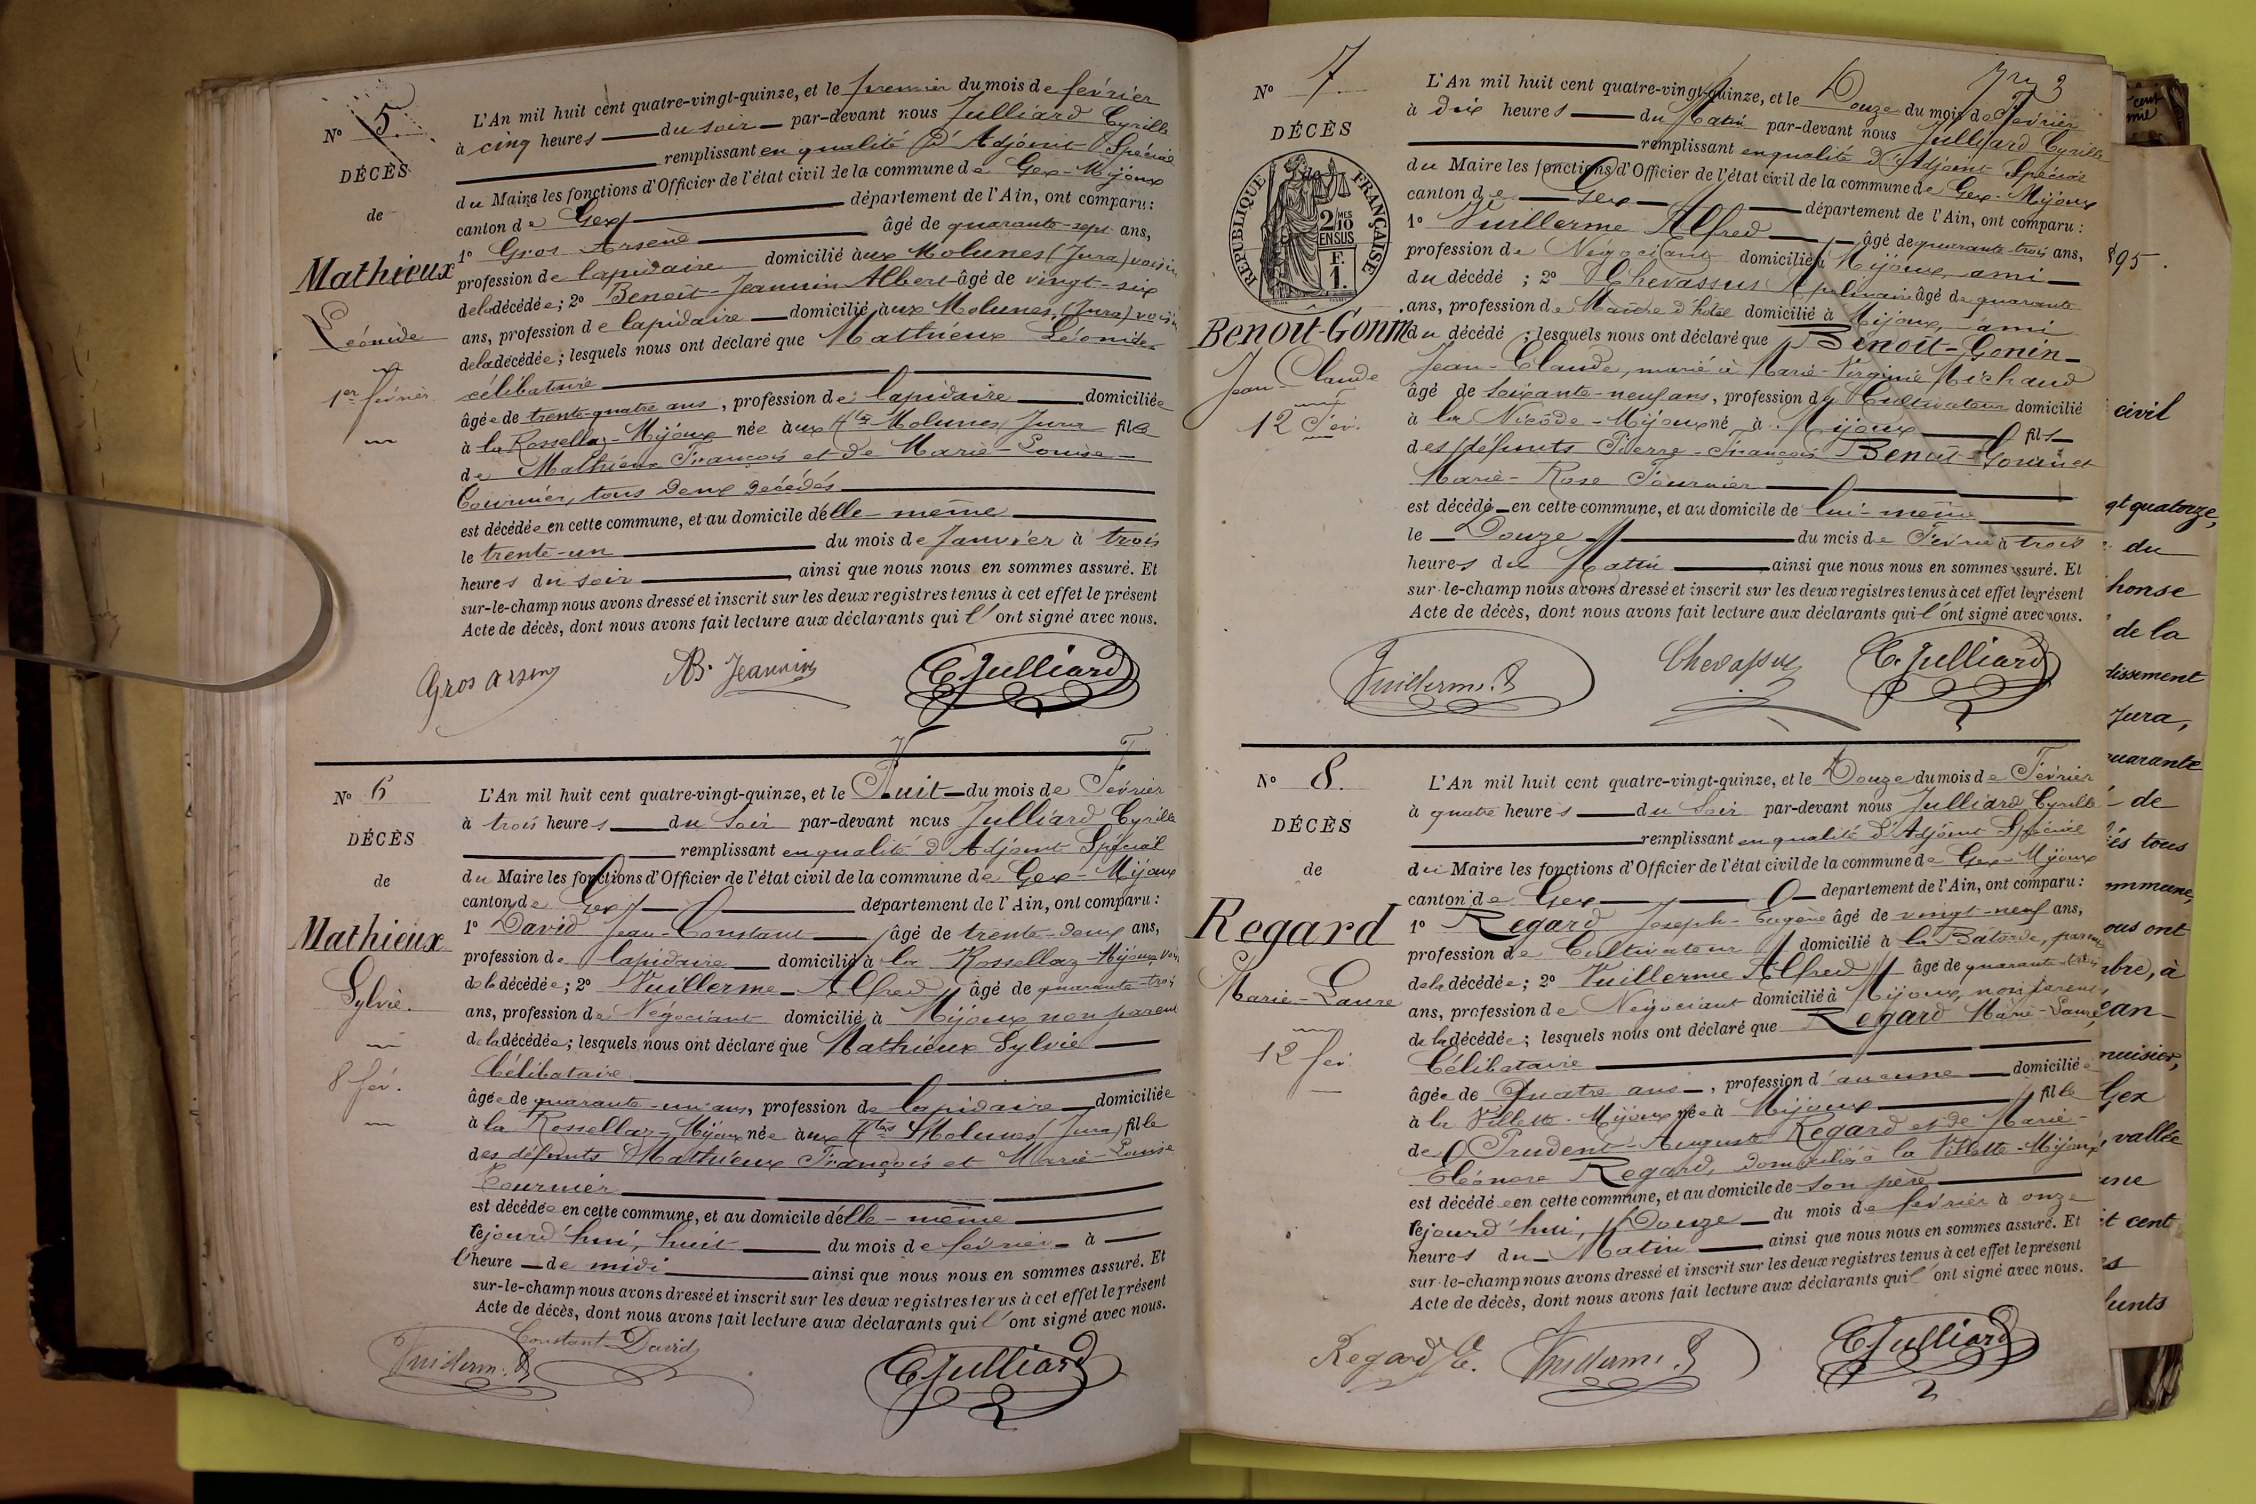 N° 5.
DÉCÈS
de
Mathieux
Léonide
1er février
L'An mil huit cent quatre-vingt-quinze, et le premier du mois de février
à cinq heures du soir par-devant nous Julliard Cyrille
remplissant en qualité d'Adjoint Spécial
du Maire les fonctions d'Officier de l'état civil de la commune de Gex-Mijoux
canton de Gex département de l'Ain, ont comparu :
1° Gros Arsène âgé de quarante-sept ans,
profession de lapidaire domicilié aux Molunes (Jura) voisin
de la décédée ; 2° Benoit-Jeannin Albert âgé de vingt-six
ans, profession de lapidaire domicilié aux Molunes (Jura) voisin
de la décédée ; lesquels nous ont déclaré que Mathieux Léonide
célibataire
âgée de trente-quatre ans, profession de lapidaire domiciliée
à la Rossellaz-Mijoux née aux Htes Molunes Jura fille
de Mathieux François et de Marie-Louise
Tournier, tous deux décédés
est décédée en cette commune, et au domicile d'elle-même
le trente-un du mois de Janvier à trois
heures du soir ainsi que nous nous en sommes assuré. Et
sur-le-champ nous avons dressé et inscrit sur les deux registres tenus à cet effet le présent
Acte de décès, dont nous avons fait lecture aux déclarants qui l'ont signé avec nous.
Gros Arsene AB. Jeannin C. Julliard
N° 6
DÉCÈS
de
Mathieux
Sylvie.
8 fév.
L'An mil huit cent quatre-vingt-quinze, et le Huit du mois de Février
à trois heures du Soir par-devant nous Julliard Cyrille
remplissant en qualité d'Adjoint Spécial
du Maire les fonctions d'Officier de l'état civil de la commune de Gex-Mijoux
canton de Gex département de l'Ain, ont comparu :
1° David Jean-Constant âgé de trente-deux ans,
profession de lapidaire domicilié à la Rossellaz-Mijoux, voisin
de la décédée ; 2° Vuillerme Alfred âgé de quarante-trois
ans, profession de Négociant domicilié à Mijoux non parent
de la décédée ; lesquels nous ont déclaré que Mathieux Sylvie
Célibataire
âgée de quarante-un ans, profession de lapidaire domiciliée
à la Rossellaz-Mijoux née aux Htes Molunes (Jura) fille
des défunts Mathieux François et Marie-Louise
Tournier
est décédée en cette commune, et au domicile d'elle-même
lejourd'hui, huit du mois de février à
l'heure de midi ainsi que nous nous en sommes assuré. Et
sur-le-champ nous avons dressé et inscrit sur les deux registres tenus à cet effet le présent
Acte de décès, dont nous avons fait lecture aux déclarants qui l'ont signé avec nous.
Constant David
Vuillerme A C. Julliard
3
N° 7
DÉCÈS
RÉPUBLIQUE FRANÇAISE
2/10 EN SUS
F.
1.
Benoit-Gonin
Jean-Claude
12 Fév.
L'An mil huit cent quatre-vingt-quinze, et le Douze du mois de Février
à dix heures du Matin par-devant nous Julliard Cyrille
remplissant en qualité d'Adjoint Spécial
du Maire les fonctions d'Officier de l'état civil de la commune de Gex-Mijoux
canton de Gex département de l'Ain, ont comparu :
1° Vuillerme Alfred âgé de quarante-trois ans,
profession de Négociant domicilié à Mijoux, ami
du décédé ; 2° Chevassus Apolinaire âgé de quarante
ans, profession de Maître d'hôtel domicilié à Mijoux, ami
du décédé ; lesquels nous ont déclaré que Benoit-Gonin
Jean-Claude, marié à Marie-Virginie Michaud
âgé de soixante-neuf ans, profession de Cultivateur domicilié
à la Nicôde-Mijoux né à Mijoux fils
des défunts Pierre-François Benoit-Gonin et
Marie-Rose Tournier
est décédé en cette commune, et au domicile de lui-même
le Douze du mois de Février à trois
heures du Matin ainsi que nous nous en sommes assuré. Et
sur-le-champ nous avons dressé et inscrit sur les deux registres tenus à cet effet le présent
Acte de décès, dont nous avons fait lecture aux déclarants qui l'ont signé avec nous.
Vuillerme A Chevassus C. Julliard
N° 8.
DÉCÈS
de
Regard
Marie-Laure
12 fév.
L'An mil huit cent quatre-vingt-quinze, et le Douze du mois de Février
à quatre heures du Soir par-devant nous Julliard Cyrille
remplissant en qualité d'Adjoint Spécial
du Maire les fonctions d'Officier de l'état civil de la commune de Gex-Mijoux
canton de Gex département de l'Ain, ont comparu :
1° Regard Joseph-Eugène âgé de vingt-neuf ans,
profession de Cultivateur domicilié à la Batarde, parent
de la décédée ; 2° Vuillerme Alfred âgé de quarante-trois
ans, profession de Négociant domicilié à Mijoux, non parent
de la décédée ; lesquels nous ont déclaré que Regard Marie-Laure
Célibataire
âgée de Quatre ans, profession d'aucune domiciliée
à la Villette-Mijoux née à Mijoux fille
de Prudent-Auguste Regard et de Marie-
Eléonore Regard, domiciliés à la Villette-Mijoux
est décédée en cette commune, et au domicile de son père
lejourd'hui, Douze du mois de février à onze
heures du Matin ainsi que nous nous en sommes assuré. Et
sur-le-champ nous avons dressé et inscrit sur les deux registres tenus à cet effet le présent
Acte de décès, dont nous avons fait lecture aux déclarants qui l'ont signé avec nous.
Regard E. Vuillerme A C. Julliard
cent
95.
civil
gt quatorze,
du
honse
de la
dissement
Jura,
quarante
de
és tous
ommune,
ous ont
bre, à
ean-
nuisier,
Gex
vallée
une
it cent
s
funts